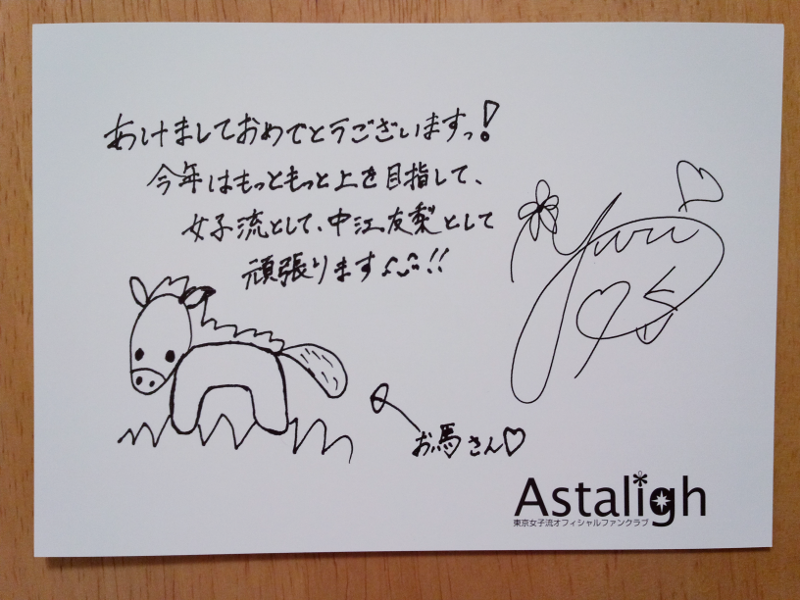 あけましておめでとうございますっ!
今年はもっともっと上を目指して、
女子流として、中江友梨として
頑張ります!!
Yuri
お馬さん♡
Astaligh
東京女子流オフィシャルファンクラブ